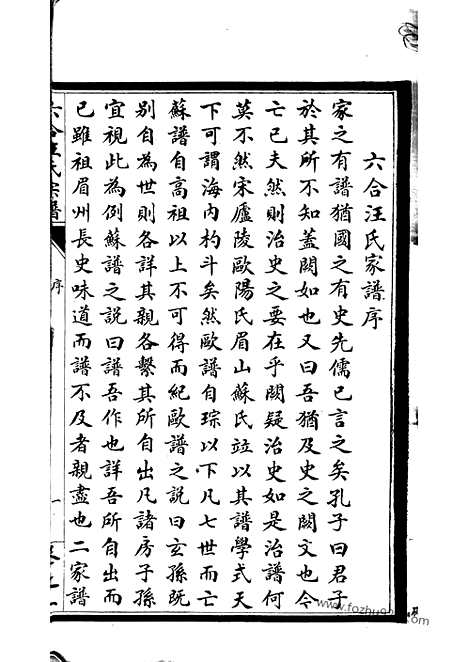 六合汪氏家譜序
家之有譜猶國之有史先儒已言之矣孔子曰君子
於其所不知蓋闕如也又曰吾猶及史之闕文也今
亡已夫然則治史之要在乎闕疑治史如是治譜何
莫不然宋廬陵歐陽氏眉山蘇氏竝以其譜學式天
下可謂海內杓斗矣然歐譜自琮以下凡七世而亡
蘇譜自高祖以上不可得而紀歐譜之說曰玄孫旣
別自為世則各詳其親各繫其所自出凡諸房子孫
宜視此為例蘇譜之說曰譜吾作也詳吾所自出而
已雖祖眉州長史味道而譜不及者親盡也二家譜
六合汪氏宗譜
序
一
www.fozhu920.com